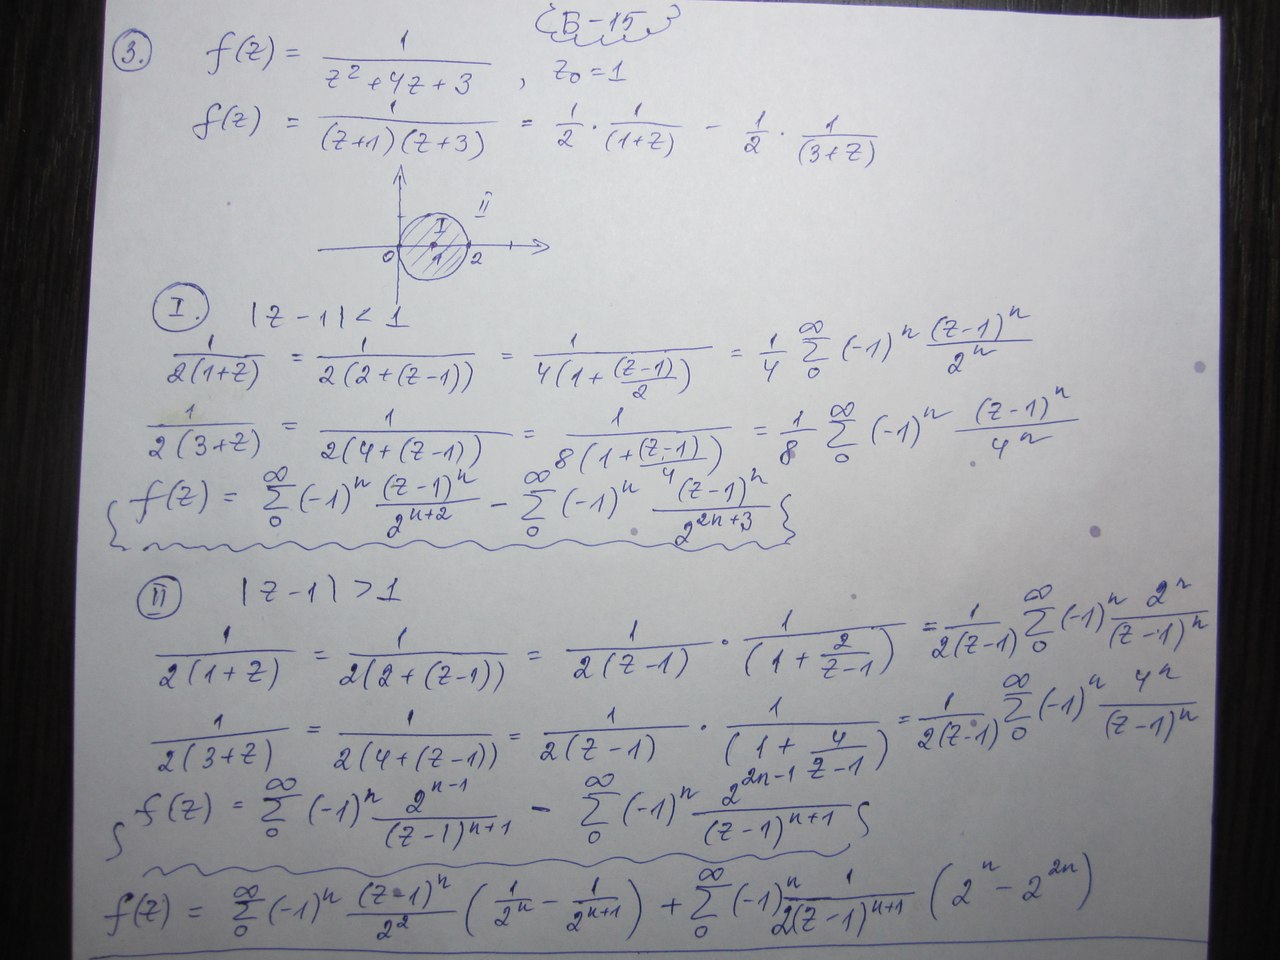 {B-15}
3. f(z) = 1/(z²+4z+3), z₀=1
f(z) = 1/((z+1)(z+3)) = 1/2 · 1/(1+z) - 1/2 · 1/(3+z)
II
I
0 1 2
I. |z-1| < 1
1/(2(1+z)) = 1/(2(2+(z-1))) = 1/(4(1+(z-1)/2)) = 1/4 ∑₀^∞ (-1)ⁿ (z-1)ⁿ/2ⁿ
1/(2(3+z)) = 1/(2(4+(z-1))) = 1/(8(1+(z-1)/4)) = 1/8 ∑₀^∞ (-1)ⁿ (z-1)ⁿ/4ⁿ
{f(z) = ∑₀^∞ (-1)ⁿ (z-1)ⁿ/2ⁿ⁺² - ∑₀^∞ (-1)ⁿ (z-1)ⁿ/2²ⁿ⁺³}
II |z-1| > 1
1/(2(1+z)) = 1/(2(2+(z-1))) = 1/(2(z-1)) · 1/(1+2/(z-1)) = 1/(2(z-1)) ∑₀^∞ (-1)ⁿ 2ⁿ/(z-1)ⁿ
1/(2(3+z)) = 1/(2(4+(z-1))) = 1/(2(z-1)) · 1/(1+4/(z-1)) = 1/(2(z-1)) ∑₀^∞ (-1)ⁿ 4ⁿ/(z-1)ⁿ
{f(z) = ∑₀^∞ (-1)ⁿ 2ⁿ⁻¹/(z-1)ⁿ⁺¹ - ∑₀^∞ (-1)ⁿ 2²ⁿ⁻¹/(z-1)ⁿ⁺¹}
f(z) = ∑₀^∞ (-1)ⁿ (z-1)ⁿ/2² (1/2ⁿ - 1/2ⁿ⁺¹) + ∑₀^∞ (-1)ⁿ 1/(2(z-1)ⁿ⁺¹) (2ⁿ - 2²ⁿ)